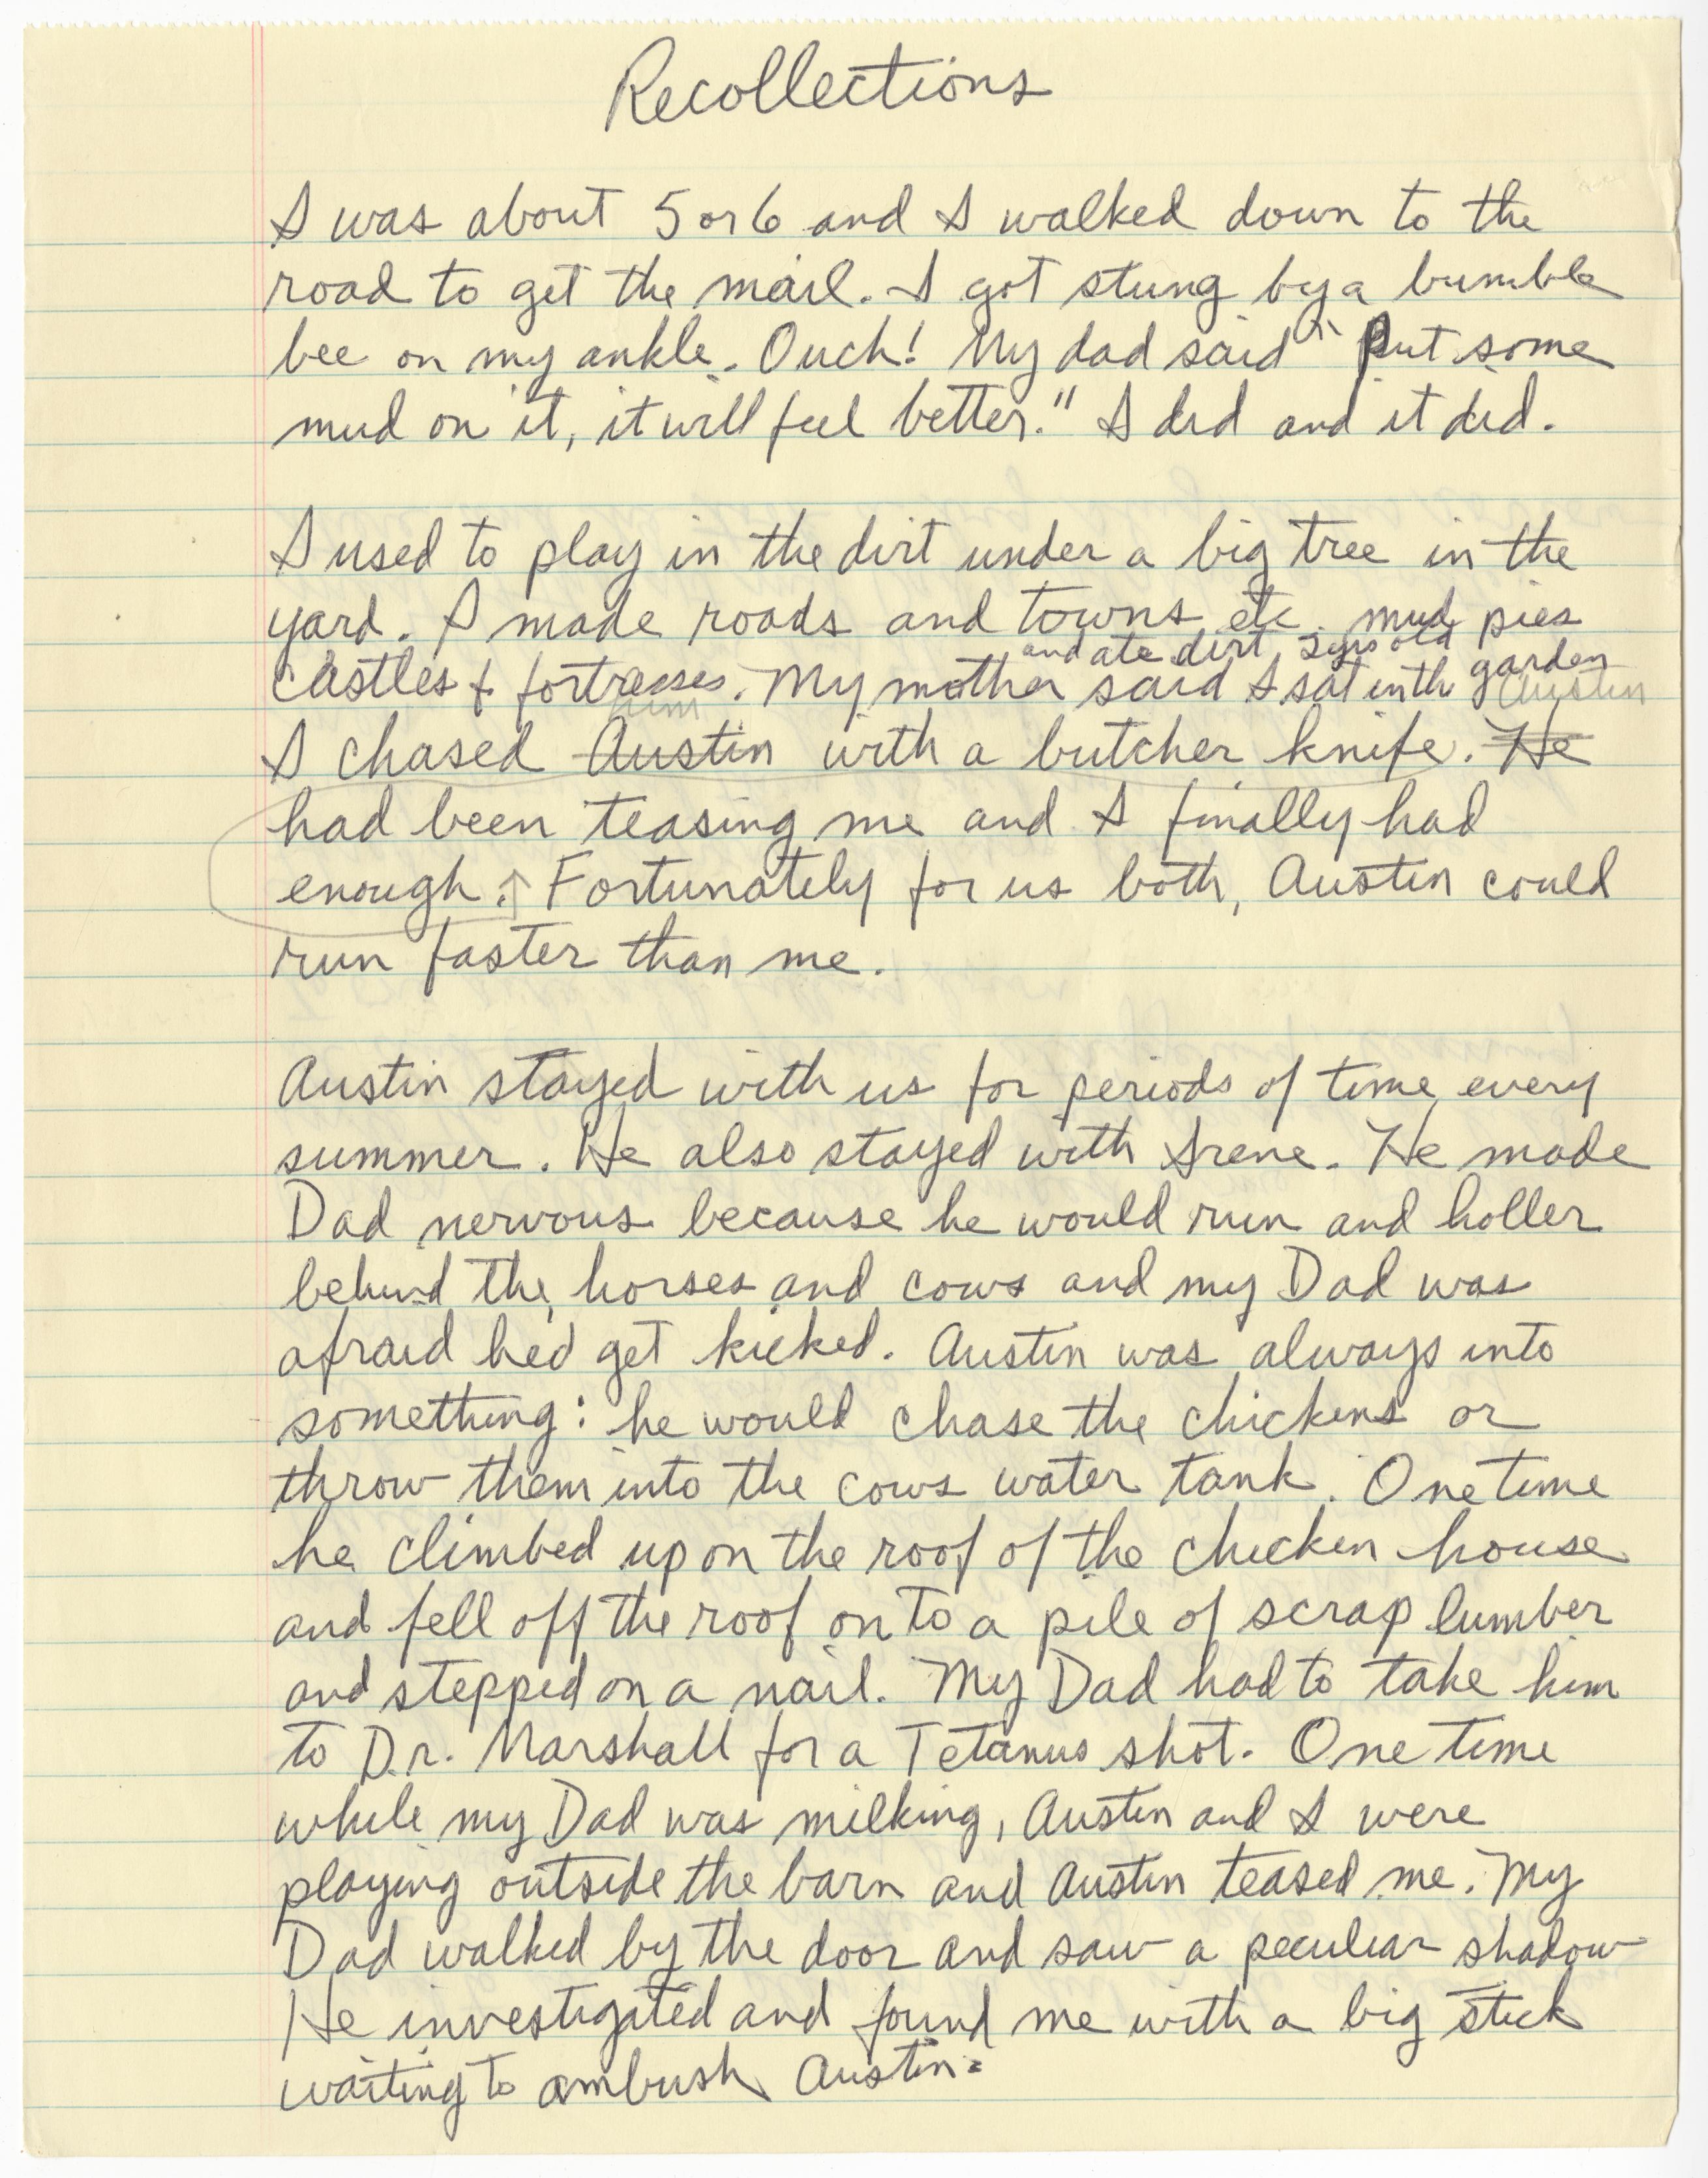 Recollections
I was about 5 or 6 and I walked down to the
road to get the mail. I got stung by a bumble
bee on my ankle. Ouch! My dad said "Put some
mud on it, it will feel better." I did and it did.
I used to play in the dirt under a big tree in the
yard. I made roads and towns etc. mud pies
and ate dirt, 2 yrs old
castles & fortresses. My mother said I sat in th garden
him Austin
I chased Austin with a butcher knife. He
had been teasing me and I finally had
enough. Fortunately for us both, Austin could
run faster than me.
Austin stayed with us for periods of time every
summer. He also stayed with Irene. He made
Dad nervous because he would run and holler
behind the horses and cows and my Dad was
afraid he'd get kicked. Austin was always into
something: he would chase the chickens or
throw them into the cows water tank. One time
he climbed up on the roof of the chicken house
and fell off the roof on to a pile of scrap lumber
and stepped on a nail. My Dad had to take him
to Dr. Marshall for a Tetanus shot. One time
while my Dad was milking, Austin and I were
playing outside the barn and Austin teased me. My
Dad walked by the door and saw a peculiar shadow
He investigated and found me with a big stick
waiting to ambush Austin.